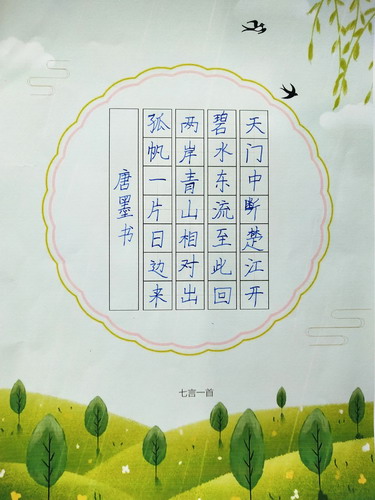 天门中断楚江开
碧水东流至此回
两岸青山相对出
孤帆一片日边来
唐墨书
七言一首